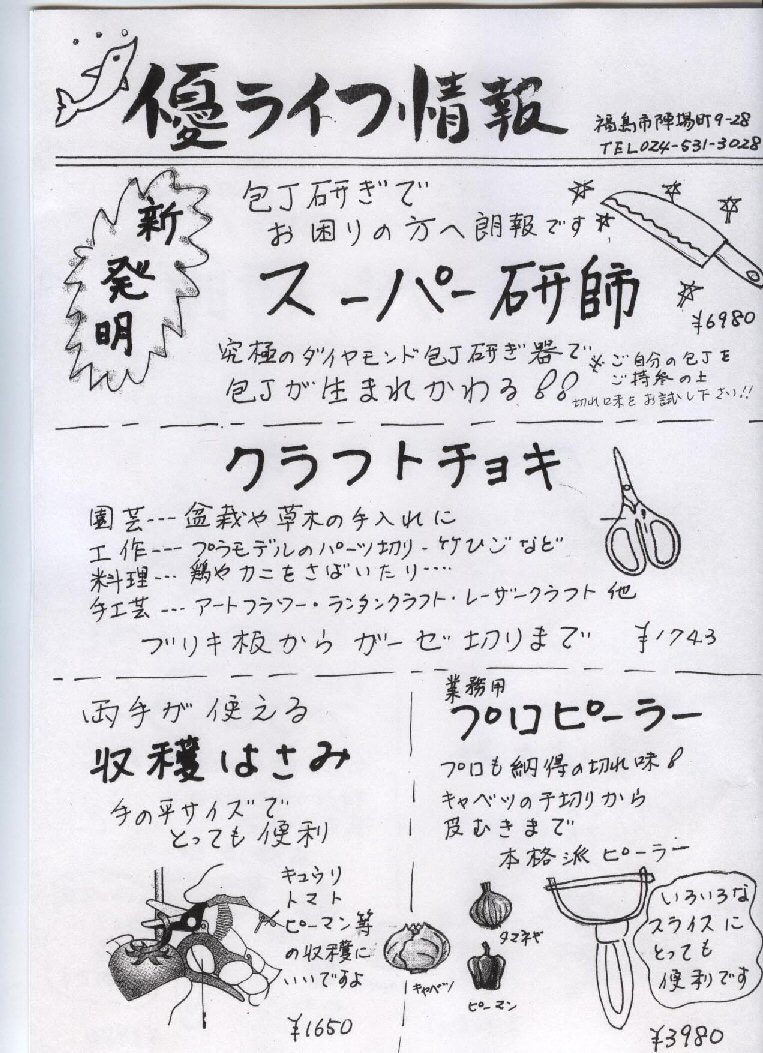 優ライフ情報
福島市陣場町9-28
TEL024-531-3028
新発明
包丁研ぎで
お困りの方へ朗報です
スーパー研師
¥6980
究極のダイヤモンド包丁研ぎ器で
包丁が生まれかわる!!
※ご自分の包丁を
ご持参の上
切れ味をお試し下さい!!
クラフトチョキ
園芸---盆栽や草木の手入れに
工作---プラモデルのパーツ切り-竹ひごなど
料理---鶏やカニをさばいたり----
手工芸---アートフラワー・ランタンクラフト・レーザークラフト他
ブリキ板からガーゼ切りまで ¥1743
両手が使える
収穫はさみ
手の平サイズで
とっても便利
キュウリ
トマト
ピーマン等
の収穫に
いいですよ
¥1650
業務用
プロピーラー
プロも納得の切れ味!
キャベツの千切りから
皮むきまで
本格派ピーラー
キャベツ
タマネギ
ピーマン
いろいろな
スライスに
とっても
便利です
¥3980